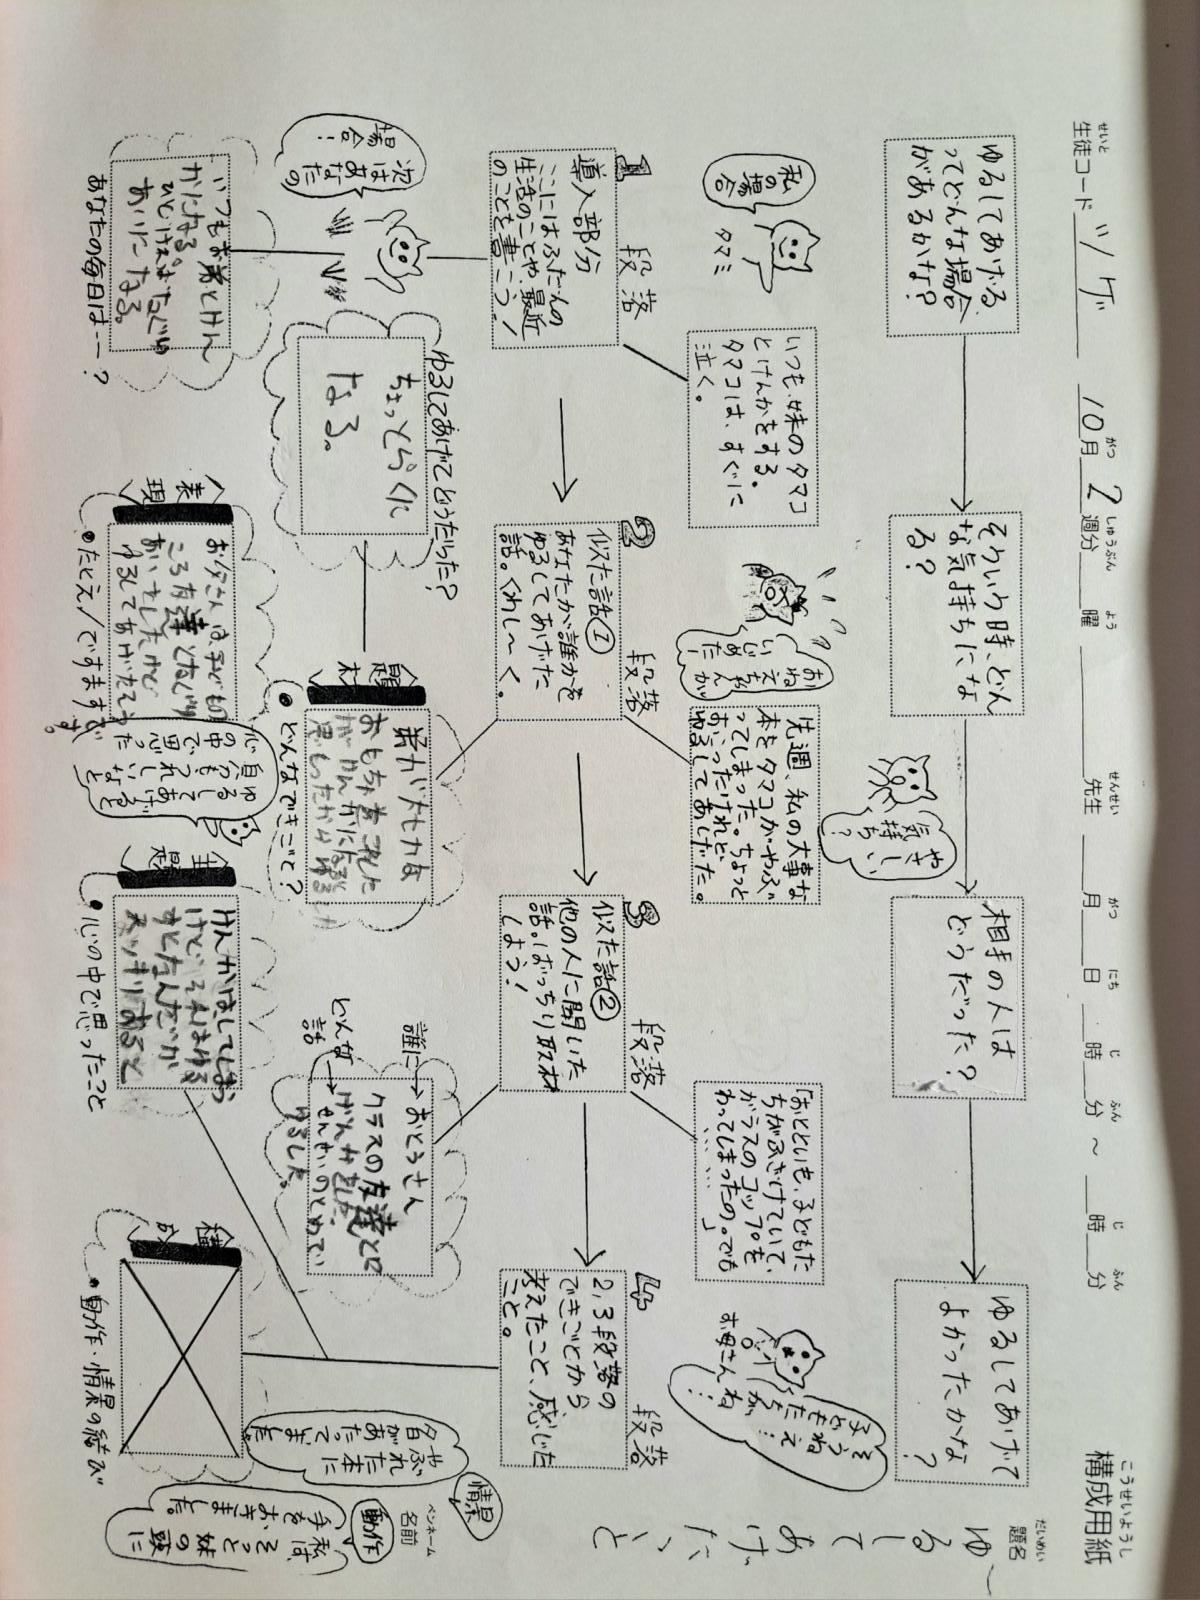 構成用紙
こうせいようし
生徒コード ツゲ 10月2週分 曜 先生 月 日 時 分 ~ 時 分
せいと がつ しゅうぶん よう せんせい がつ にち じ ふん じ ふん
題名
だいめい
ゆるして
あげ
たいと
ペンネーム
名前
ゆるしてあげる
ってどんな場合
があるかな?
そういう時、どん
な気持ちにな
る?
相手の人は
どうだった?
ゆるしてあげて
よかったかな
?
私の場合
タマミ
いつも、妹のタマコ
とけんかをする。
タマコは、すぐに
泣く。
やさしい
気持ち?
おねえちゃんが
いじめた!
先週、私の大事な
本をタマコがやぶ
ってしまった。ちょっと
おこったけれど、
ゆるしてあげた。
「おとといも、子どもた
ちがふざけていて、
ガラスのコップを
わってしまったの。でも
・・・・・・」
お母さん
1
段落
導入部分
ここにはふだんの
生活のことや、最近
のことを書こう!
2
段落
似た話①
あなたが誰かを
ゆるしてあげた
話。くわし~く。
3
段落
似た話②
他の人に聞いた
話。ばっちり取材
しよう!
4
段落
2,3段落の
できごとから
考えたこと、感じた
こと。
次はあなたの
場合!
ゆるしてあげてどうだった?
ちょっとらくに
なる。
題材
弟が大切な
おもちゃをこわした
●どんなできごと?
誰に→おとうさん
どんな話→
クラスの友達と
けんかをした。
ゆるした。
いつもお弟とけん
かになる。
あいこになる。
あなたの毎日は……?
表現
お父さんは、子どもの
ころ友達となぐり
あいをしたけど
ゆるしてあげたそう
です。
●たとえ/ですますで
ゆるしてあげると
自分もうれしいなと
心の中で思った
主題
けんかはしてしまう
けど
スッキリすると
●心の中で思ったこと
結び
●動作・情景の結び
情景
やぶれた本に
夕日があたっていました。
動作
私は、そっと妹の頭に
手をおきました。